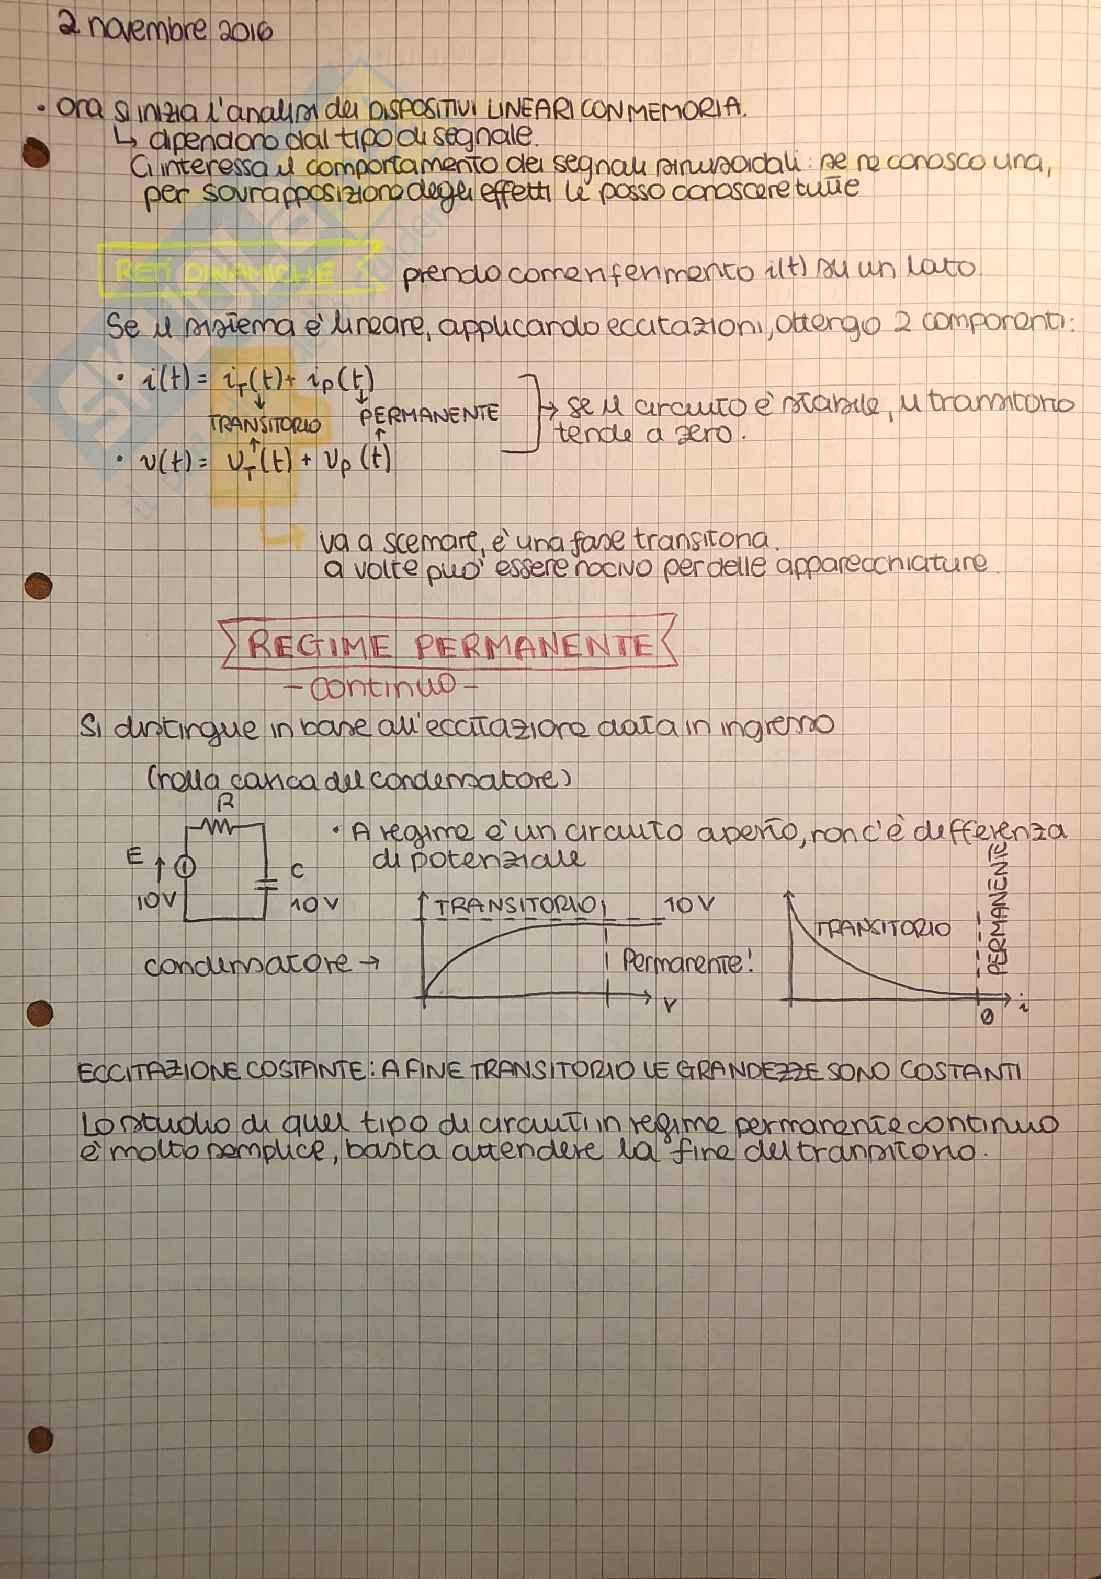 2 novembre 2016
• Ora si inizia l'analisi dei DISPOSITIVI LINEARI CON MEMORIA.
↳ dipendono dal tipo di segnale.
Ci interessa il comportamento dei segnali sinusoidali: se ne conosco una,
per sovrapposizione degli effetti le posso conoscere tutte
RETI DINAMICHE prendo come riferimento i(t) su un lato
Se il sistema è lineare, applicando eccitazioni, ottengo 2 componenti:
• i(t) = i_T(t) + i_P(t)
TRANSITORIO PERMANENTE
• v(t) = v_T(t) + v_P(t)
→ se il circuito è stabile, il transitorio
tende a zero.
va a scemare, è una fase transitoria.
a volte può essere nocivo per delle apparecchiature
REGIME PERMANENTE
- continuo -
Si distingue in base all'eccitazione data in ingresso
(nella carica del condensatore)
R
E
10V
C
10V
• A regime è un circuito aperto, non c'è differenza
di potenziale
condensatore →
TRANSITORIO
10V
Permanente!
v
TRANSITORIO
PERMANENTE
0
i
ECCITAZIONE COSTANTE: A FINE TRANSITORIO LE GRANDEZZE SONO COSTANTI
Lo studio di quel tipo di circuiti in regime permanente continuo
è molto semplice, basta attendere la fine del transitorio.